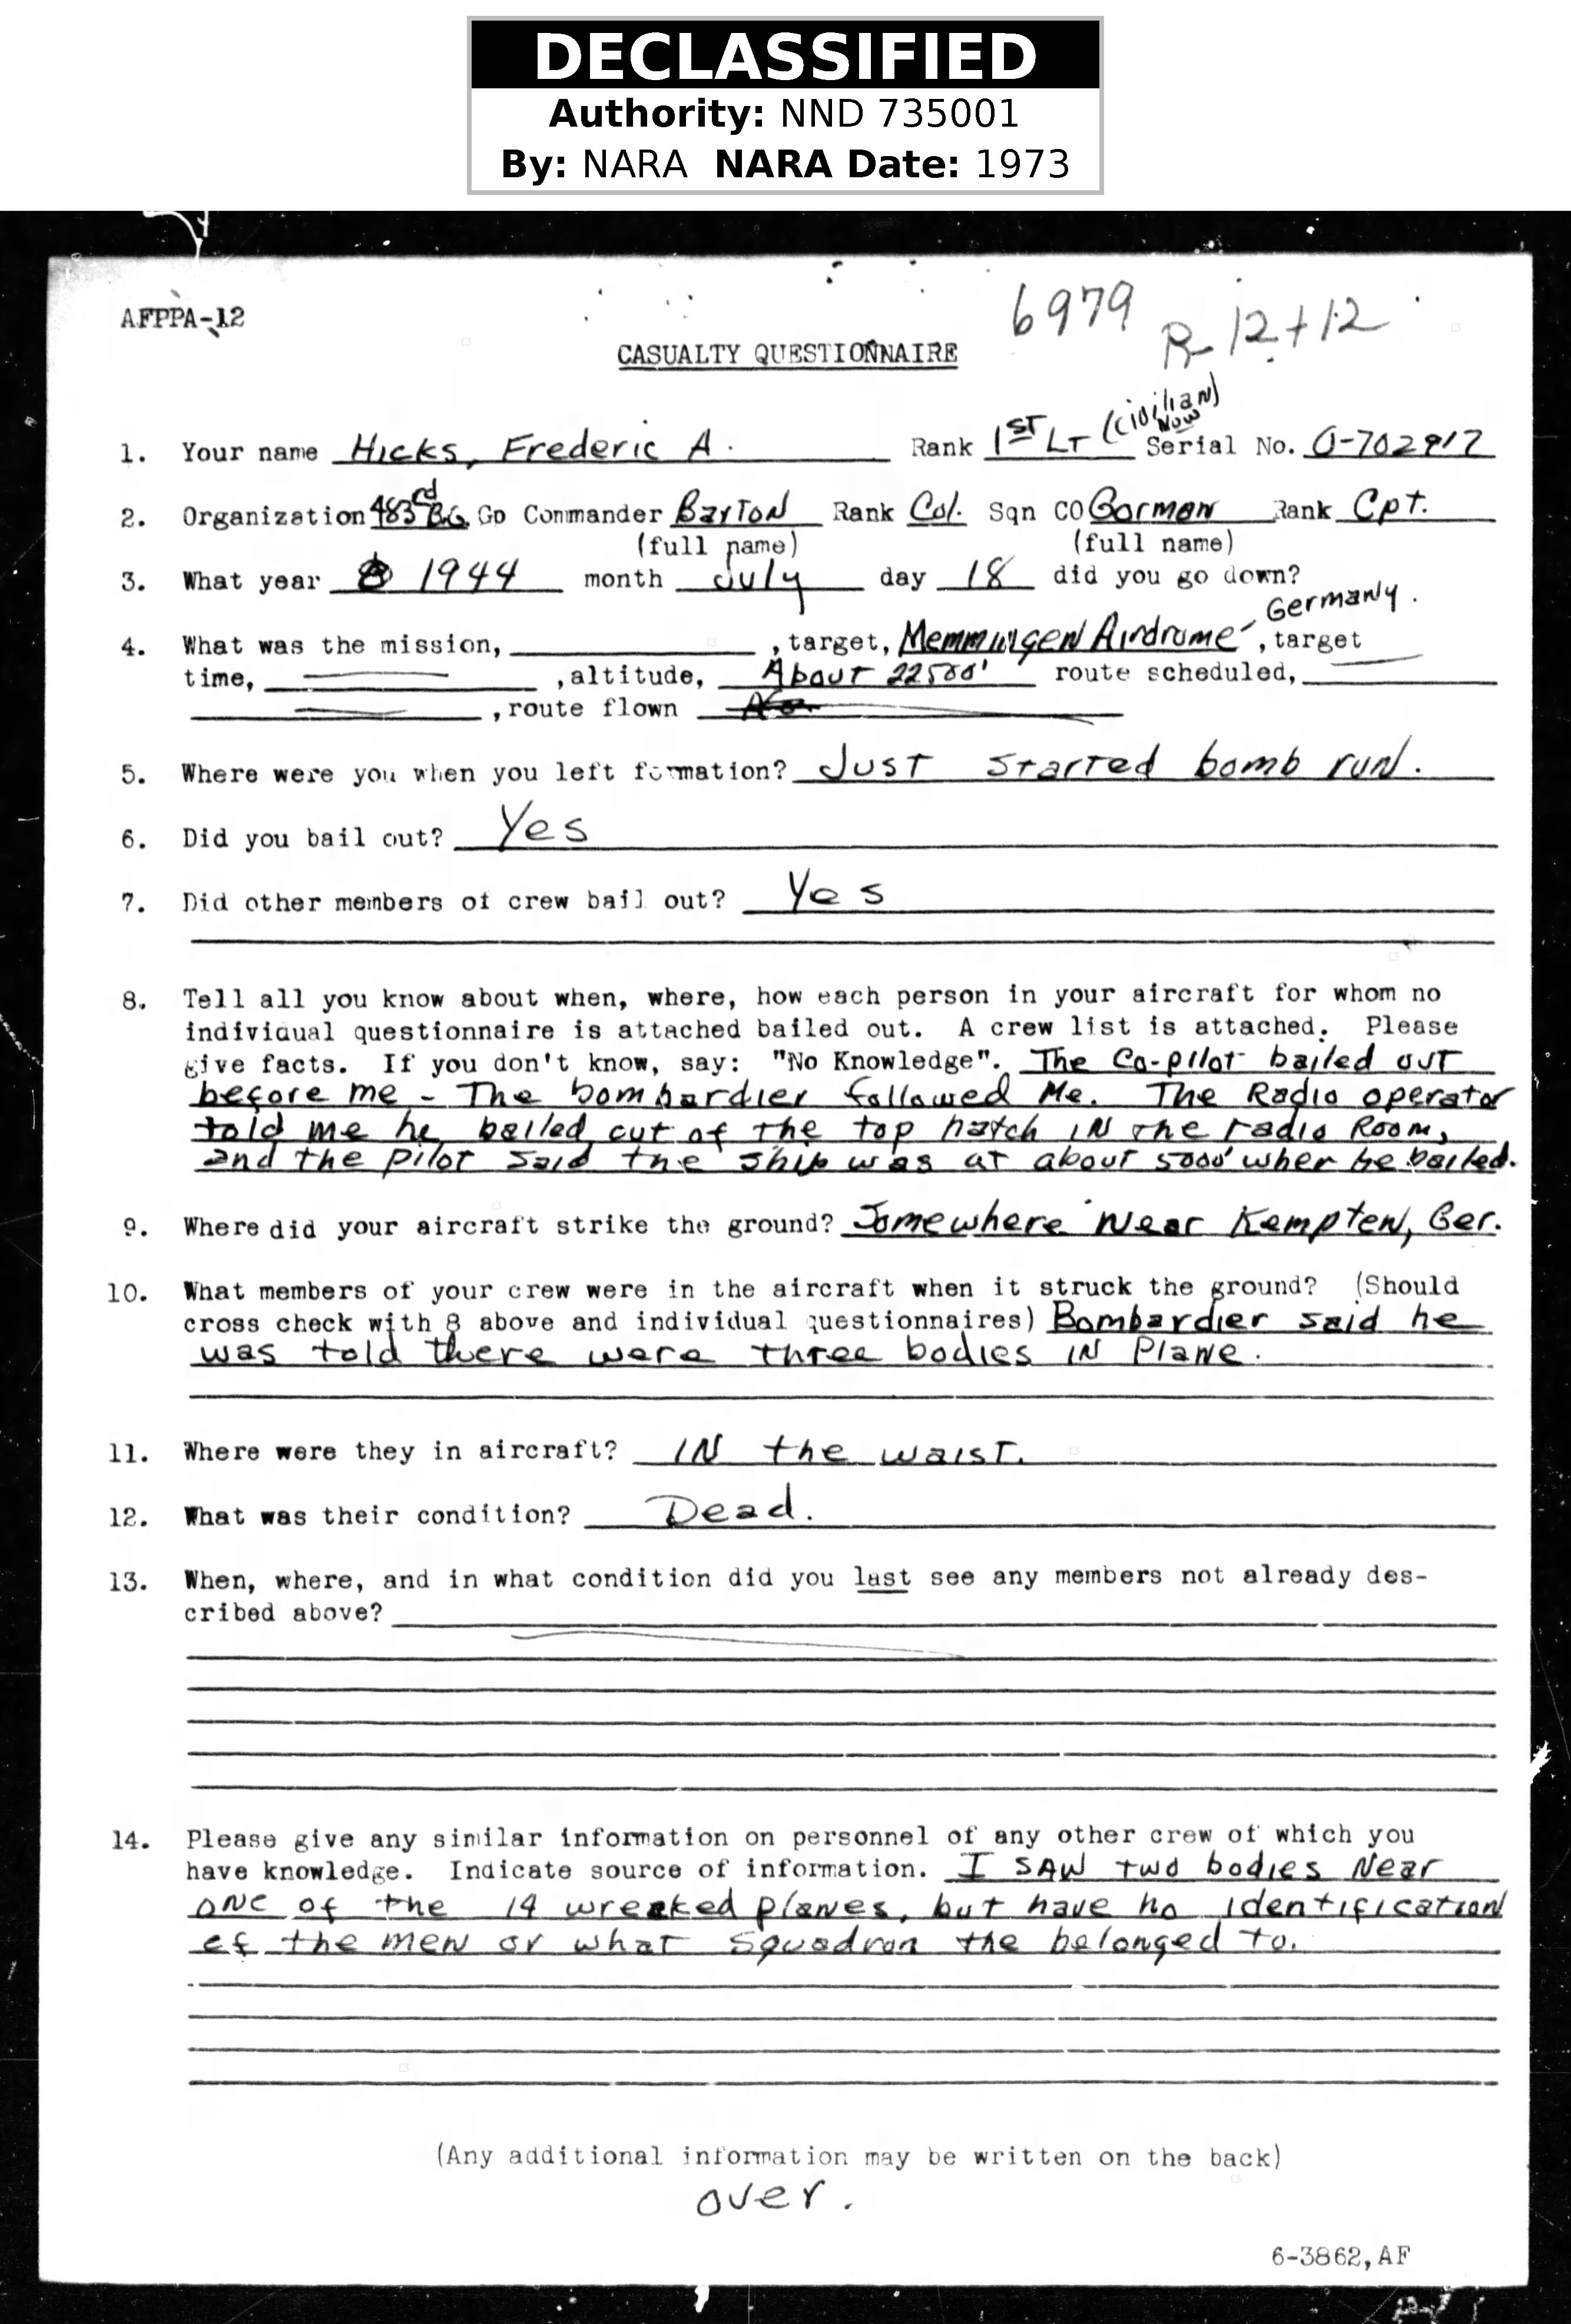 DECLASSIFIED
Authority: NND 735001
By: NARA NARA Date: 1973
AFPPA-12
6979
R-12+12
CASUALTY QUESTIONNAIRE
1. Your name Hicks, Frederic A. Rank 1ST LT (Civilian Now) Serial No. O-702917
2. Organization 483rd BG Gp Commander Barton Rank Col. Sqn CO Gorman Rank Cpt.
(full name) (full name)
3. What year 1944 month July day 18 did you go down?
Germany.
4. What was the mission, , target, Memmingen Airdrome, target
time, , altitude, About 22500' route scheduled,
, route flown
5. Where were you when you left formation? Just started bomb run.
6. Did you bail out? Yes
7. Did other members of crew bail out? Yes
8. Tell all you know about when, where, how each person in your aircraft for whom no
individual questionnaire is attached bailed out. A crew list is attached. Please
give facts. If you don't know, say: "No Knowledge". The Co-pilot bailed out
before me - The bombardier followed Me. The Radio operator
told me he bailed out of the top hatch in the radio Room,
and the pilot said the ship was at about 5000' when he bailed.
9. Where did your aircraft strike the ground? Somewhere Near Kempten, Ger.
10. What members of your crew were in the aircraft when it struck the ground? (Should
cross check with 8 above and individual questionnaires) Bombardier said he
was told there were three bodies in Plane.
11. Where were they in aircraft? In the waist.
12. What was their condition? Dead.
13. When, where, and in what condition did you last see any members not already des-
cribed above?
14. Please give any similar information on personnel of any other crew of which you
have knowledge. Indicate source of information. I saw two bodies Near
one of the 14 wrecked planes, but have no identification
of the men or what squadron the belonged to.
(Any additional information may be written on the back)
over.
6-3862, AF